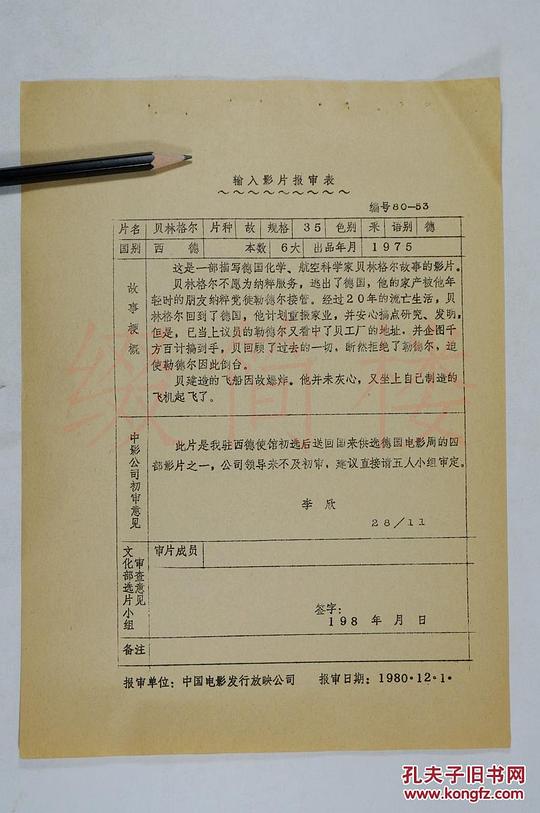 输入影片报审表
编号80-53
片名 贝林格尔 片种 故 规格 35 色别 彩 语别 德
国别 西德 本数 6大 出品年月 1975
故事梗概
这是一部描写德国化学、航空科学家贝林格尔故事的影片。
贝林格尔不愿为纳粹服务，逃出了德国，他的家产被他年
轻时的朋友纳粹党徒勒德尔接管。经过20年的流亡生活，贝
林格尔回到了德国，他计划重振家业，并安心搞点研究、发明，
但是，已当上议员的勒德尔又看中了贝工厂的地址，并企图千
方百计搞到手，贝回顾了过去的一切，断然拒绝了勒德尔，迫
使勒德尔因此倒台。
贝建造的飞船因故爆炸。他并未灰心，又坐上自己制造的
飞机起飞了。
中影公司初审意见
此片是我驻西德使馆初选后送回国来供选德国电影周的四
部影片之一，公司领导来不及初审，建议直接请五人小组审定。
李欣
28/11
文化部选片小组
审查意见
审片成员
签字：
198 年 月 日
备注
报审单位：中国电影发行放映公司 报审日期：1980·12·1·
缀简楼
孔夫子旧书网
www.kongfz.com